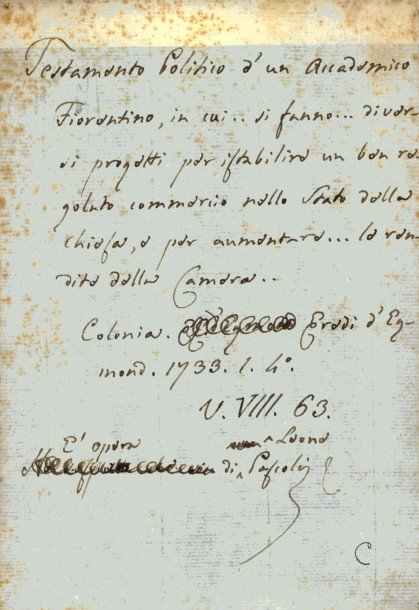 Testamento Politico d' un Accademico
Fiorentino, in cui .. si fanno ... diver-
si progetti per istabilire un ben re-
golato commercio nello Stato della
Chiesa, e per aumentare ... le ren-
dite della Camera ..
Colonia. Eredi d' Eg-
mond. 1733. 4°.
V. VIII. 63.
E' opera Leone
di Pascoli
C